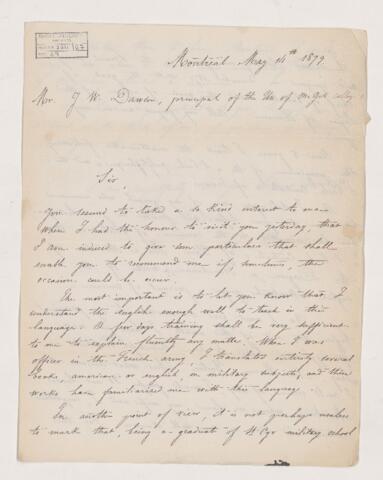 Montreal May 14th 1879
Mr. J W. Dawson, principal of the Un of McGill College
Sir,
You seemed to take a so kind interest to me
when I had the honour to visit you yesterday, that
I am induced to give some particulars that shall
enable you to recommend me if, sometimes, the
occasion could be occur.
The most important is to let you know that I
understand the english enough well to teach in this
language. A few days training shall be very sufficient
to me to explain fluently any matter. When I was
officer in the French army, I translated entirely several
books, american or english on military subjects, and these
works have familiarized me with this language.
In another point of view, it is not perhaps useless
to mark that, being a graduate of St Cyr military school